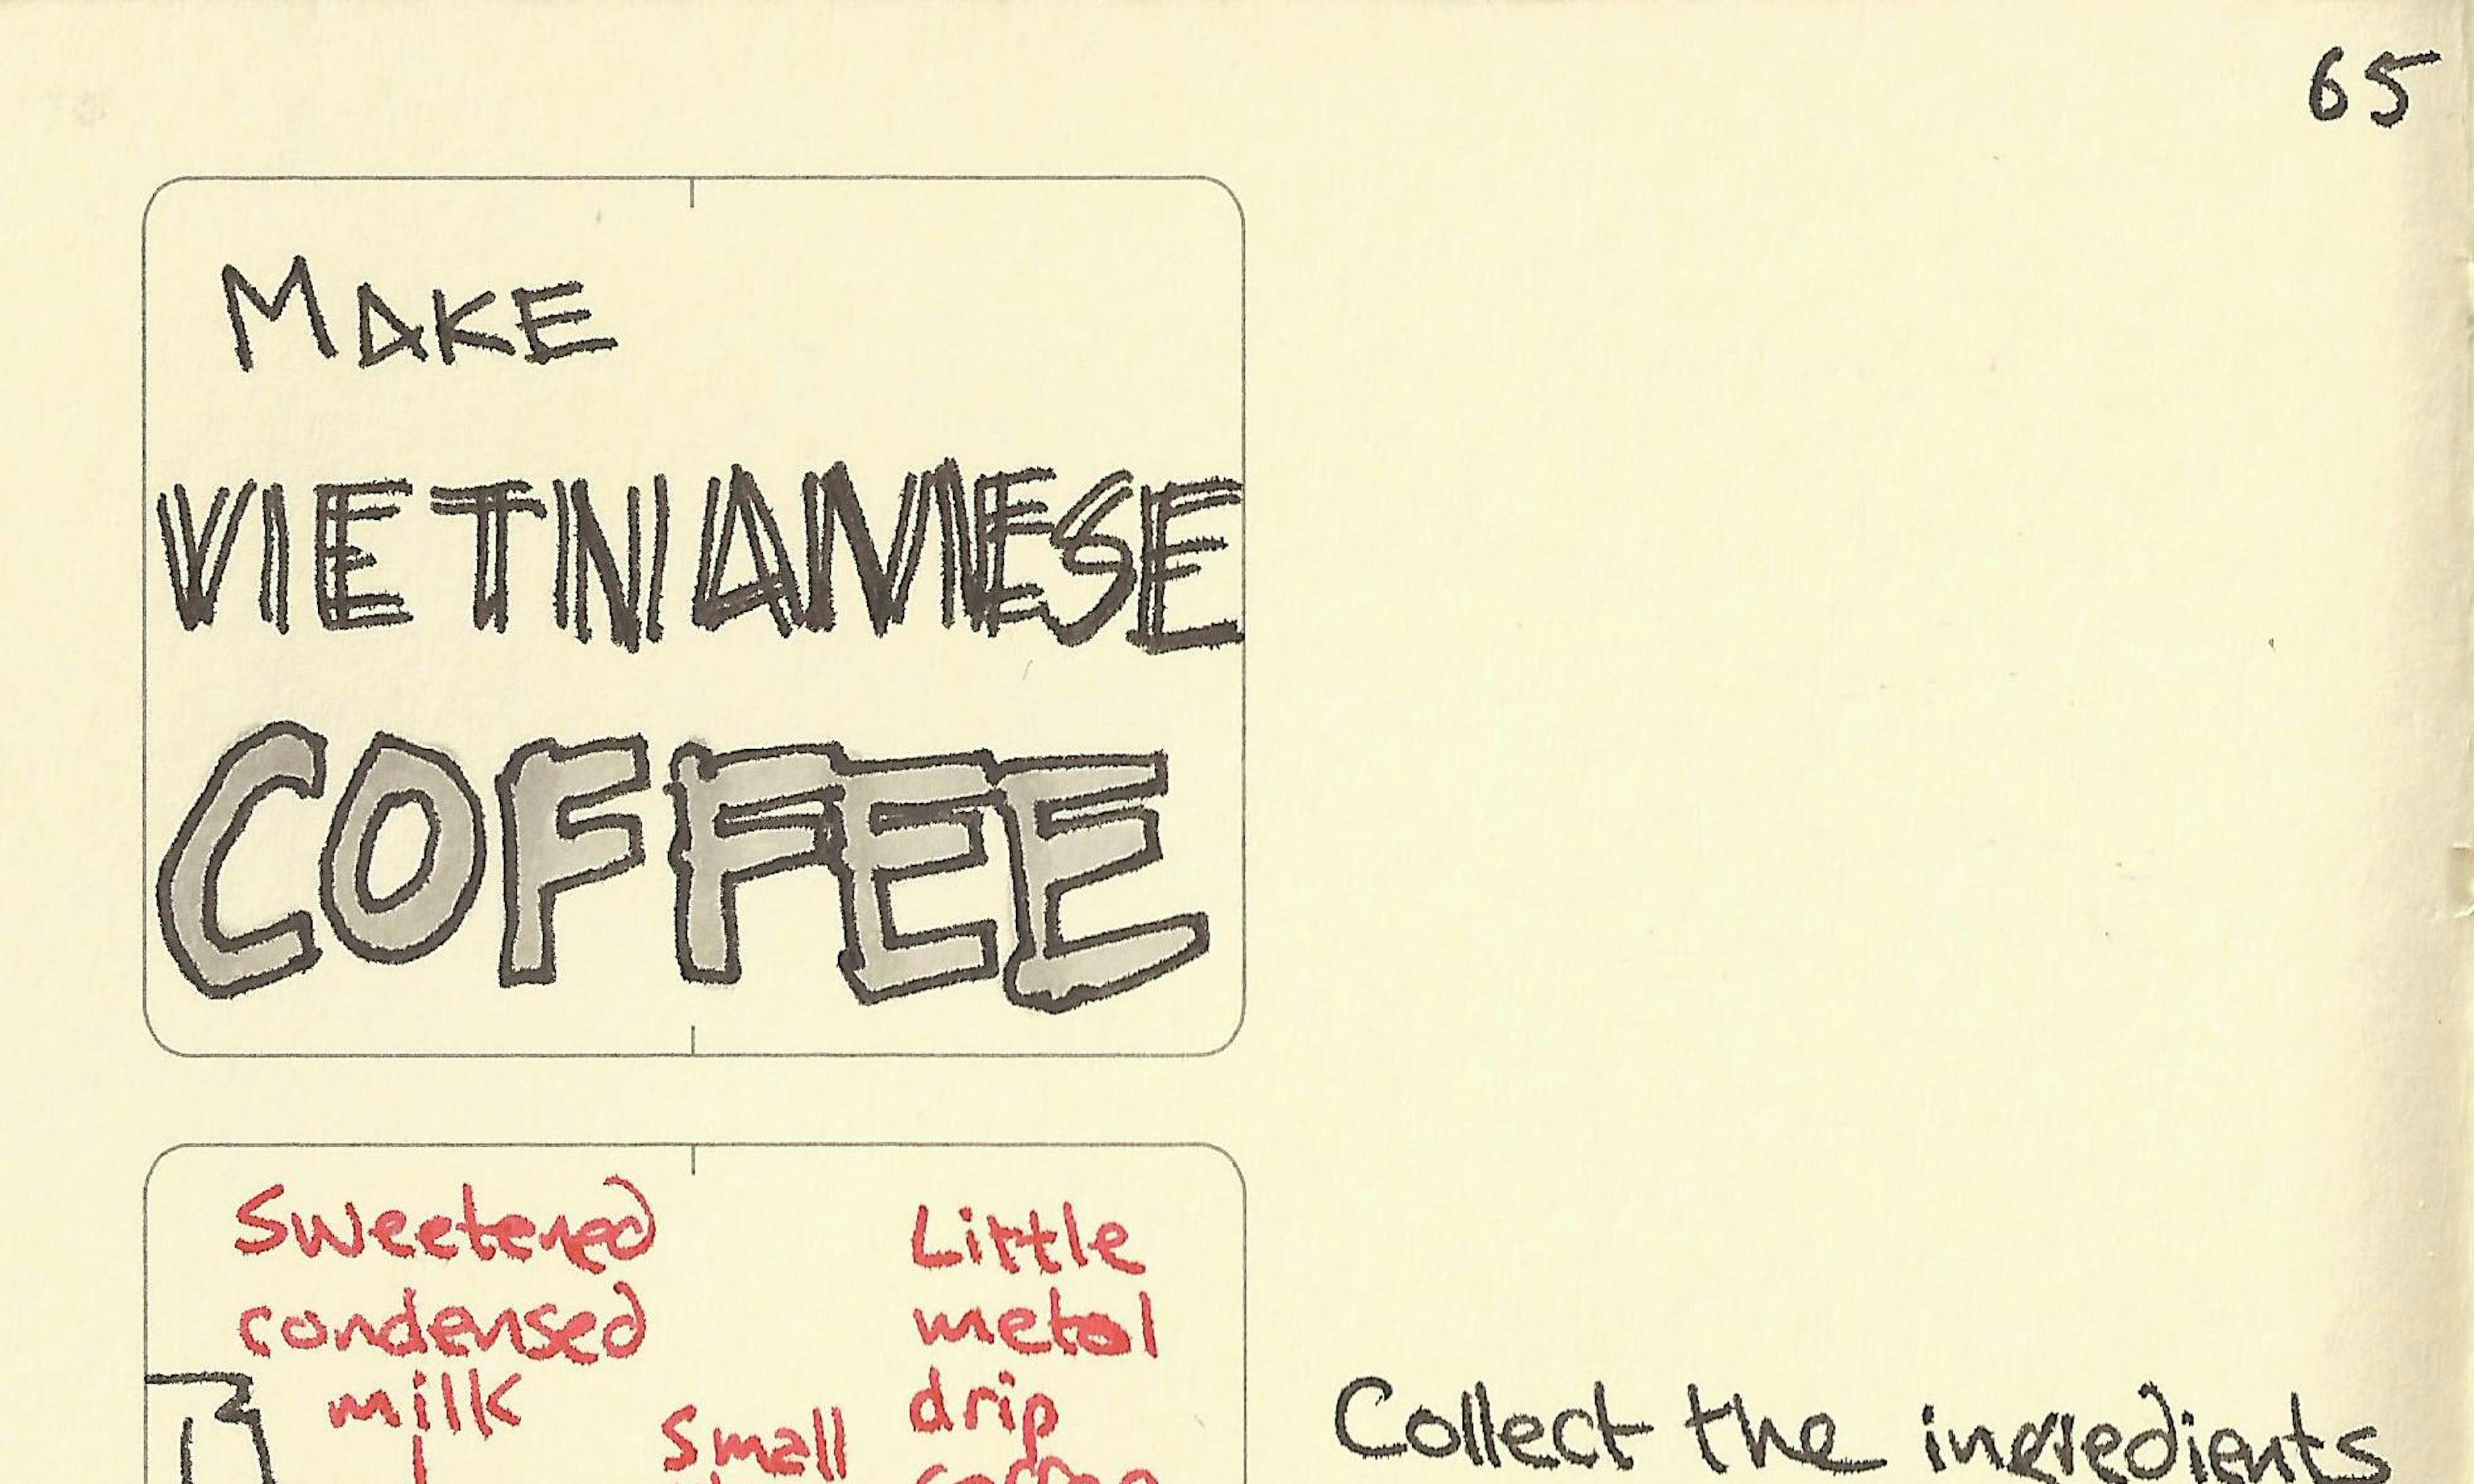 65
MAKE
VIETNAMESE
COFFEE
Sweetened
condensed
milk
Small
Little
metal
drip
coffee
Collect the ingredients